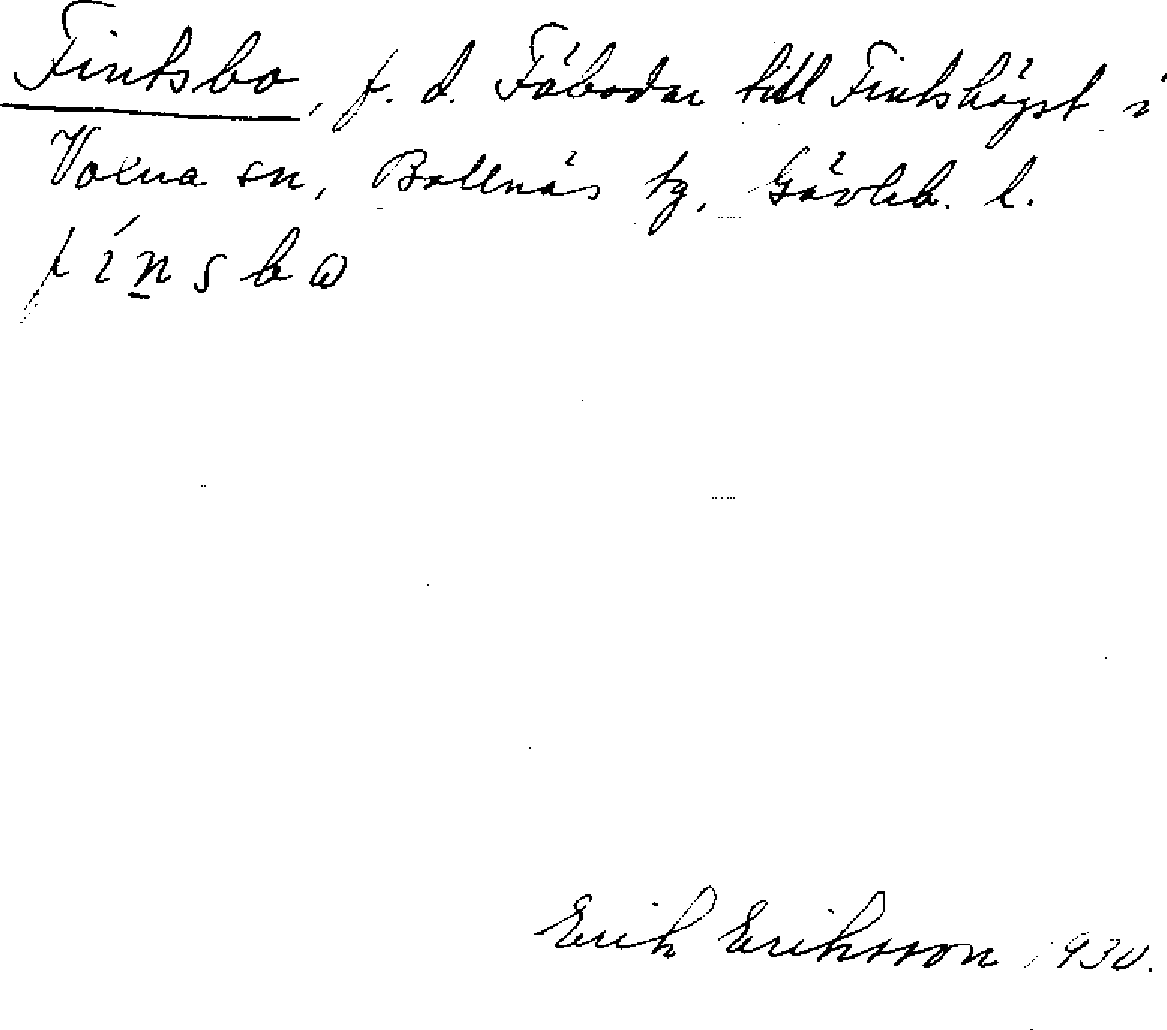 Finksbo, f. d. Fäbodar till Finkshögst i
Voxna sn, Bollnäs tg, Gävleb. l.
f í n s b ω
Erik Eriksson 1930.